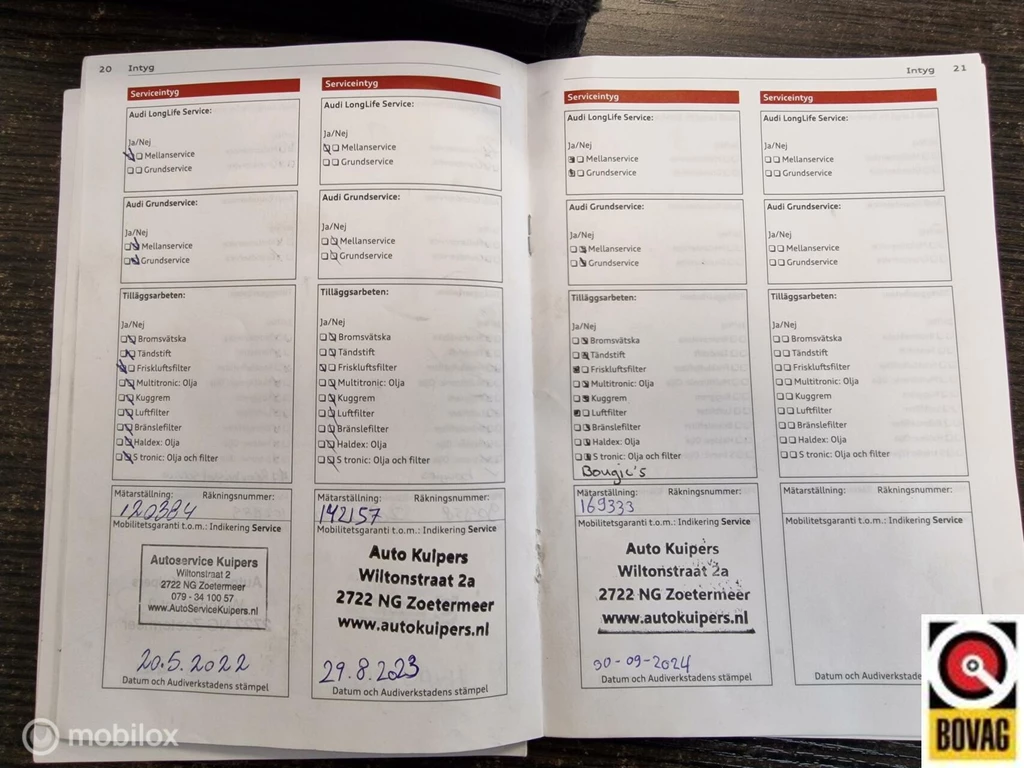 20 Intyg
Serviceintyg
Audi LongLife Service:
Ja/Nej
Mellanservice
Grundservice
Audi Grundservice:
Ja/Nej
Mellanservice
Grundservice
Tilläggsarbeten:
Ja/Nej
Bromsvätska
Tändstift
Friskluftsfilter
Multitronic: Olja
Kuggrem
Luftfilter
Bränslefilter
Haldex: Olja
S tronic: Olja och filter
Mätarställning: Räkningsnummer:
120384
Mobilitetsgaranti t.o.m.: Indikering Service
Autoservice Kuipers
Wiltonstraat 2
2722 NG Zoetermeer
079 - 34 100 57
www.AutoServiceKuipers.nl
20.5.2022
Datum och Audiverkstadens stämpel
Serviceintyg
Audi LongLife Service:
Ja/Nej
Mellanservice
Grundservice
Audi Grundservice:
Ja/Nej
Mellanservice
Grundservice
Tilläggsarbeten:
Ja/Nej
Bromsvätska
Tändstift
Friskluftsfilter
Multitronic: Olja
Kuggrem
Luftfilter
Bränslefilter
Haldex: Olja
S tronic: Olja och filter
Mätarställning: Räkningsnummer:
142157
Mobilitetsgaranti t.o.m.: Indikering Service
Auto Kuipers
Wiltonstraat 2a
2722 NG Zoetermeer
www.autokuipers.nl
29.8.2023
Datum och Audiverkstadens stämpel
Intyg 21
Serviceintyg
Audi LongLife Service:
Ja/Nej
Mellanservice
Grundservice
Audi Grundservice:
Ja/Nej
Mellanservice
Grundservice
Tilläggsarbeten:
Ja/Nej
Bromsvätska
Tändstift
Friskluftsfilter
Multitronic: Olja
Kuggrem
Luftfilter
Bränslefilter
Haldex: Olja
S tronic: Olja och filter
Bougie's
Mätarställning: Räkningsnummer:
169333
Mobilitetsgaranti t.o.m.: Indikering Service
Auto Kuipers
Wiltonstraat 2a
2722 NG Zoetermeer
www.autokuipers.nl
30-09-2024
Datum och Audiverkstadens stämpel
Serviceintyg
Audi LongLife Service:
Ja/Nej
Mellanservice
Grundservice
Audi Grundservice:
Ja/Nej
Mellanservice
Grundservice
Tilläggsarbeten:
Ja/Nej
Bromsvätska
Tändstift
Friskluftsfilter
Multitronic: Olja
Kuggrem
Luftfilter
Bränslefilter
Haldex: Olja
S tronic: Olja och filter
Mätarställning: Räkningsnummer:
Mobilitetsgaranti t.o.m.: Indikering Service
Datum och Audiverkstadens
BOVAG
mobilox